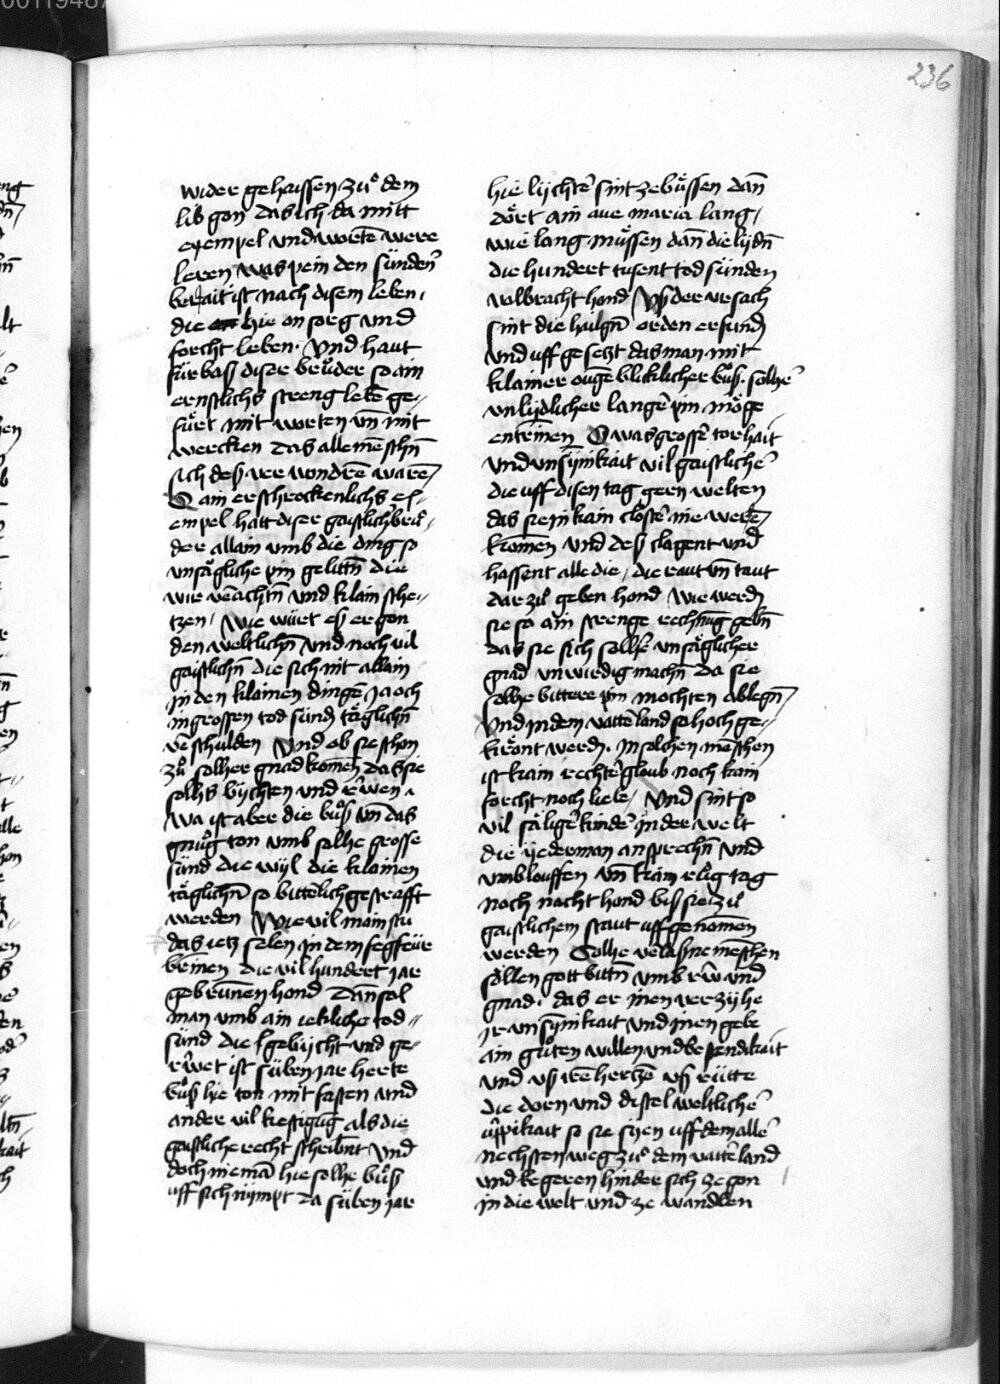 236
wider gehaissen zuͦ dem
lib gon das ich da mitt
exempel vnd worte͂ were
leren was pein den sünden
berait ist nach disem leben
die hie on sorg vnd
forcht leben. Vnd haut
fürbass diser bruͦder so ain
ernstlichs streng lebe͂ ge„
fürt mit worten vn͂ mit
wercken das alle menschn͂
sich des ver wondre͂ ware͂
O ain erschrockenlichs ex„
empel hatt diser gaistlich bruͦ„
der allain vmb die ding so
vnsägliche pin gelittn͂ die
wir verachtn͂ vnd klain sche„
tzen / Wie würt es ergon
den weltlichn͂ vnd noch vil
gaistlichn͂ die sich nit allain
in den klainen dinge͂ ja och
in grossen tod sünd͂ täglichn͂
verschulden Vnd ob sie schon
zuͦ solher gnad komen͂ das sie
solhs bychten vnd rüwen
wa ist aber die buͦs vn͂ das
gnuͦg ton vmb solhe grosse
sünd die wyl die klainen
täglichn͂ so bittelich gestrafft
werden Wie vil mainstu
das ietz selen in dem fegfeür
brinen die vil hundert jar
gebrunen͂ hond Dan͂ sol
man vmb ain iekliche tod„
sünd die gebycht vnd ge„
rüwet ist süben jar herte
buͦs hie ton mit fasten vnd
ander vil kestigug͂ als die
gaistliche recht schribent vnd
doch niema͂ hie solhe buͦs
uff sich nympt da süben jar
hie lychter͂ sint ze buͤssen dan͂
dört ain aue maria lang /
wie lang muͤssen dan͂ die lydn͂
die hundert tusent tod sünden
volbracht hond Vs der vrsach
sint die hailgn͂ orden erfund͂
vnd uff gesetzt das man mit
klainer ouge͂ blicklicher buͦs. solhe͂
vnlydlicher lange͂ pin möge
entrinen͂ O was grosse͂ torhait
vnd vnsynikait vil gaistliche͂
die uff disen tag gern welten
das sie in kain closter͂ nie were͂
komen͂ vnd des clagent vnd
hassent alle die / die raut vn͂ taut
dar zuͦ geben hond Wie werd͂
sie so ain strenge rechnug͂ gebn͂
das sie sich solhe͂ vnsäglicher
gnad vnwirdig machn͂ da sie
solhe bittere pin mochten ablegn͂
Vnd in dem vatter͂land so hoch ge„
krönt werd͂. In solchen menschen
ist kain rechter͂ gloub noch kain
forcht noch liebe / Vnd sint so
vil säliger͂ kinder͂ in der welt
die yederman ansprechn͂ vnd
vmb louffen vn͂ kain ruͦig tag
noch nacht hond bis sie zuͦ
gaistlichem staut uff genomen͂
werden Solhe verlasne menschen
söllen gott bittn͂ vmb rüw vnd
gnad. das er inen verzyhe
ir vnsynikait vnd inen gebe
ain guͦten willen vnd bestendikait
vnd vs ire͂ hertze͂ vs rütte
die dorn vnd distel weltliche͂
üppikait so sie syen uff dem alle͂
nechsten weg zuͦ dem vatter͂land
vnd begeren hinder sich ze gon
in die welt vnd ze wandlen